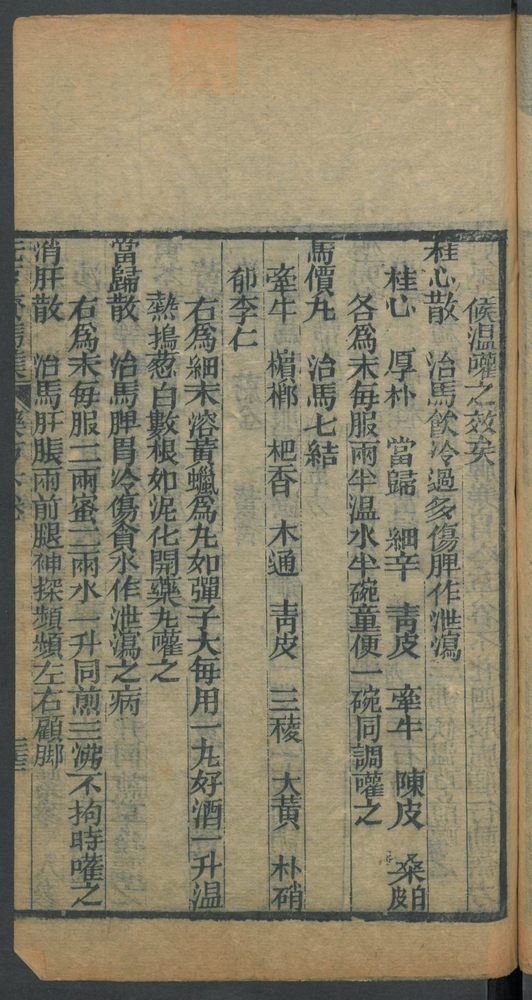 候温嚾之效矣
桂心散　治馬飲冷過多傷脾作泄瀉
桂心　厚朴　當歸　細辛　青皮　牽牛　陳皮　桑白皮
各爲末每服兩半温水半碗童便一碗同調嚾之
馬價九　治馬七結
牽牛　檳榔　杷香　木通　青皮　三稜　大黄　朴硝
郁李仁
右爲細末溶黄蠟爲九如彈子大每用一九好酒一升温
熱搗葱白數根如泥化開藥九嚾之
當歸散　治馬脾胃冷傷貪水作泄瀉之病
右爲末每服二兩蜜二兩水一升同煎三沸不拘時嚾之
消肝散　治馬肝脹兩前腿神探頻頻左右顧脚